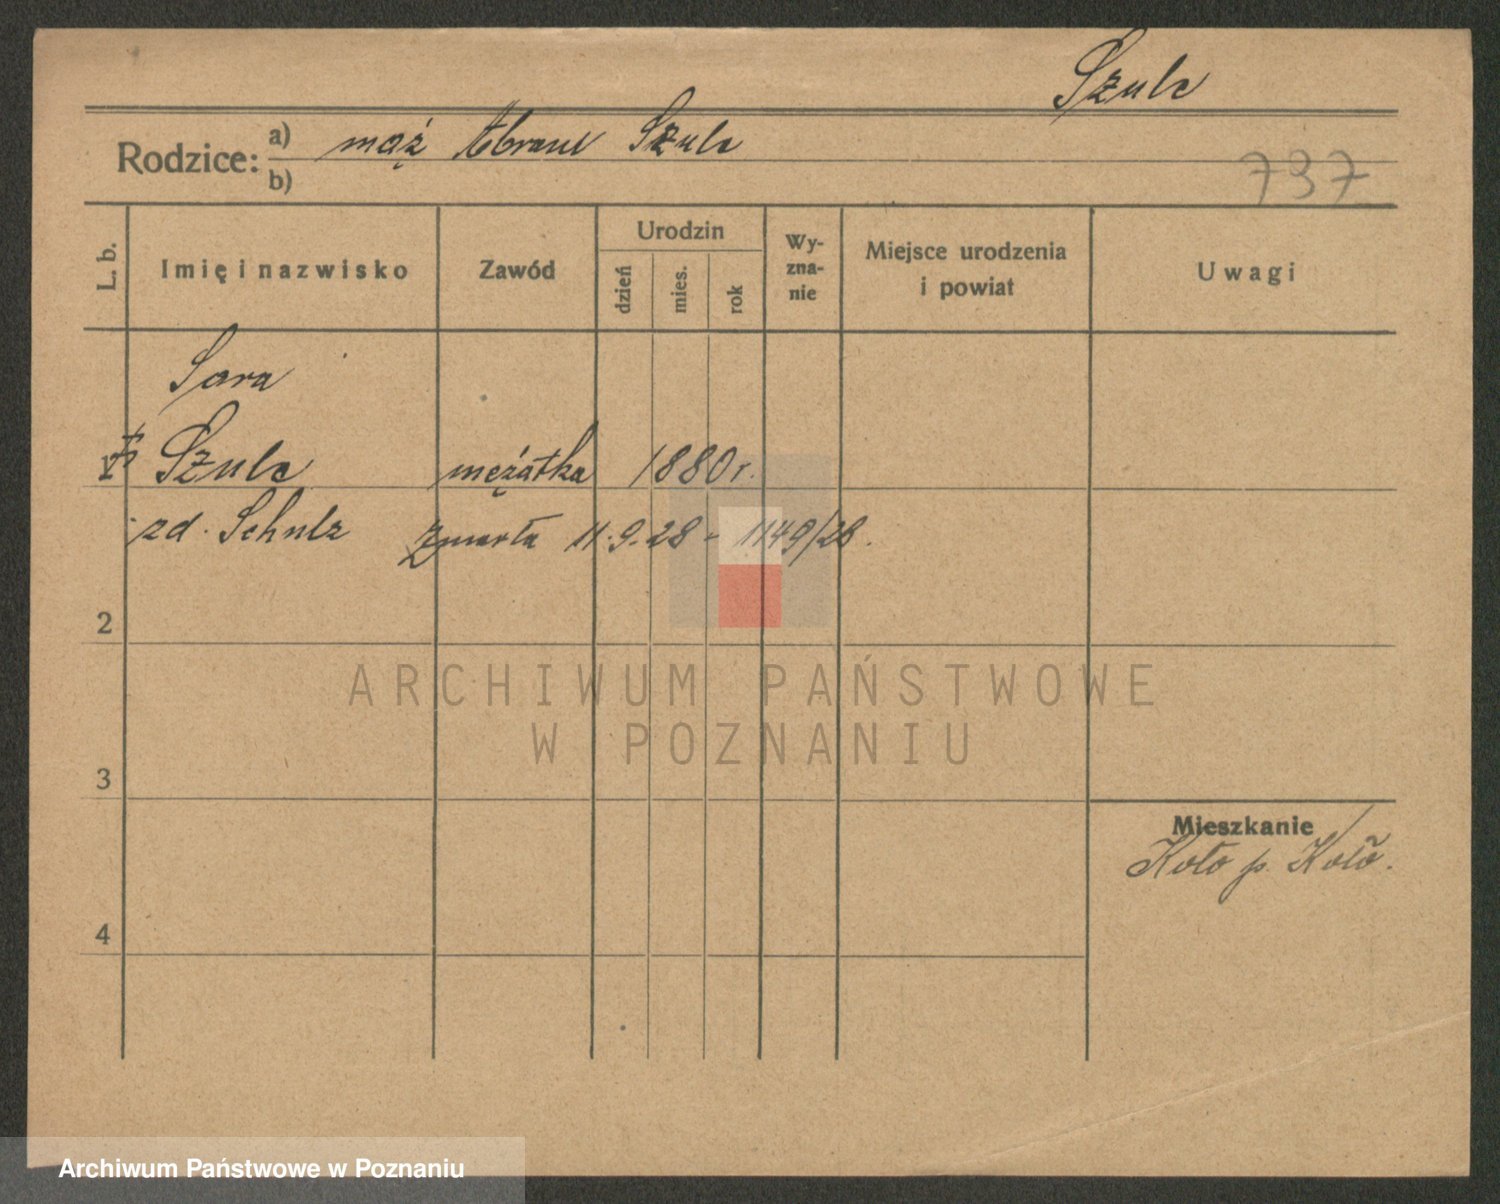 Szulc
Rodzice: a) mąż Abram Szulc
b)
737
L. b.
Imię i nazwisko
Zawód
Urodzin
dzień
mies.
rok
Wy-
zna-
nie
Miejsce urodzenia
i powiat
Uwagi
Sara
1 Szulc mężatka 1880 r.
zd. Schulz Zmarła 11.9.28 - 1149/28.
2
ARCHIWUM PAŃSTWOWE
W POZNANIU
3
Mieszkanie
Koło p. Koło.
4
Archiwum Państwowe w Poznaniu